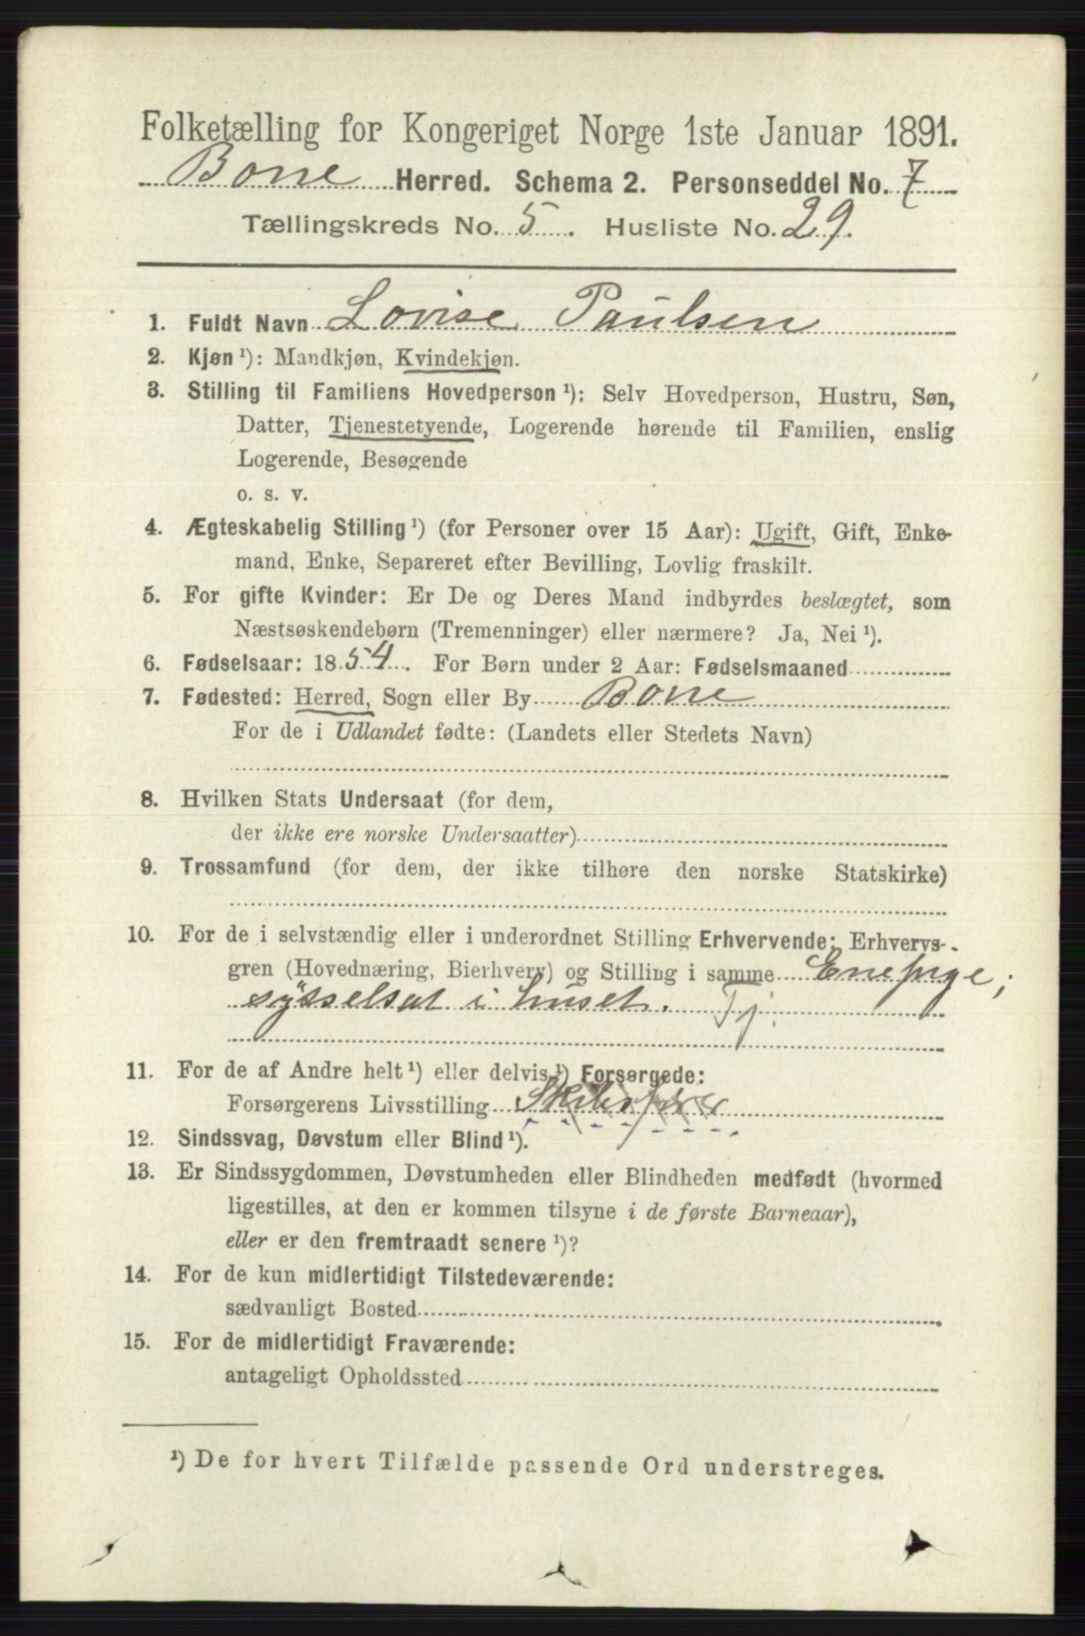 Folketælling for Kongeriget Norge 1ste Januar 1891.
Borre Herred. Schema 2. Personseddel No. 7
Tællingskreds No. 5. Husliste No. 29.
1. Fuldt Navn Lovise Paulsen
2. Kjøn ¹): Mandkjøn, Kvindekjøn.
3. Stilling til Familiens Hovedperson ¹): Selv Hovedperson, Hustru, Søn,
Datter, Tjenestetyende, Logerende hørende til Familien, enslig
Logerende, Besøgende
o. s. v.
4. Ægteskabelig Stilling ¹) (for Personer over 15 Aar): Ugift, Gift, Enke-
mand, Enke, Separeret efter Bevilling, Lovlig fraskilt.
5. For gifte Kvinder: Er De og Deres Mand indbyrdes beslægtet, som
Næstsøskendebørn (Tremenninger) eller nærmere? Ja, Nei ¹).
6. Fødselsaar: 1854. For Børn under 2 Aar: Fødselsmaaned
7. Fødested: Herred, Sogn eller By Borre
For de i Udlandet fødte: (Landets eller Stedets Navn)
8. Hvilken Stats Undersaat (for dem,
der ikke ere norske Undersaatter)
9. Trossamfund (for dem, der ikke tilhøre den norske Statskirke)
10. For de i selvstændig eller i underordnet Stilling Erhvervende: Erhvervs-
gren (Hovednæring, Bierhverv) og Stilling i samme Enepige;
sysselsat i huset. Tj.
11. For de af Andre helt ¹) eller delvis ¹) Forsørgede:
Forsørgerens Livsstilling Skibsfører
12. Sindssvag, Døvstum eller Blind ¹).
13. Er Sindssygdommen, Døvstumheden eller Blindheden medfødt (hvormed
ligestilles, at den er kommen tilsyne i de første Barneaar),
eller er den fremtraadt senere ¹)?
14. For de kun midlertidigt Tilstedeværende:
sædvanligt Bosted
15. For de midlertidigt Fraværende:
antageligt Opholdssted
¹) De for hvert Tilfælde passende Ord understreges.